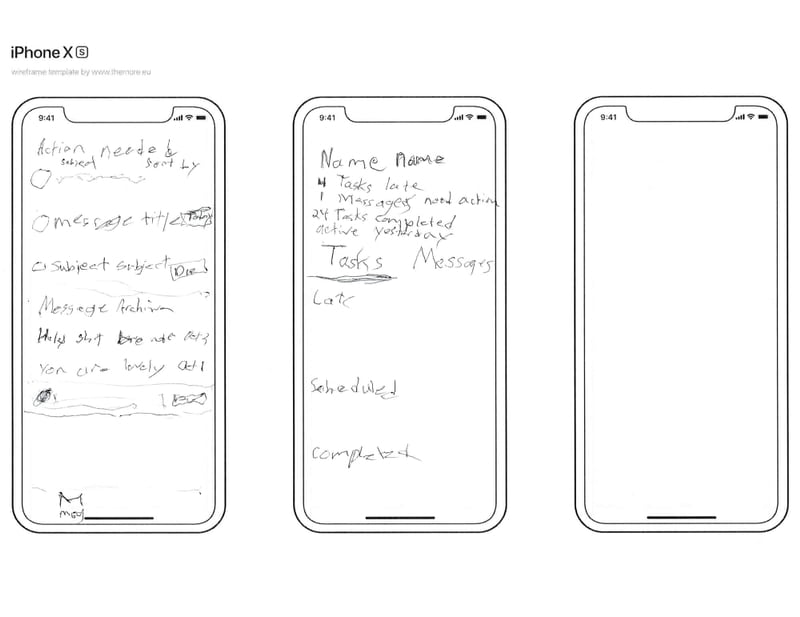 iPhone X S
wireframe template by www.themore.eu
9:41
Action needed
subject sort by
message title Today
Subject Subject Due
Message Archive
Oct 3
You are lovely Oct 1
9:41
Name name
4 Tasks late
1 Messages need action
24 Tasks completed
active yesterday
Tasks Messages
Late
Scheduled
Completed
9:41